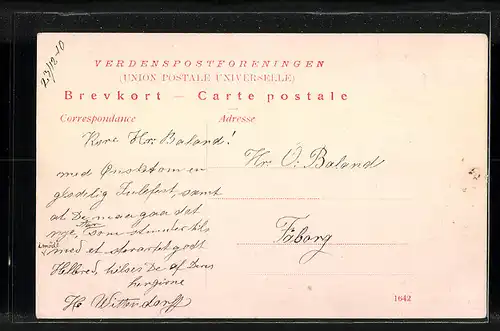 23/12-10
VERDENSPOSTFORENINGEN
(UNION POSTALE UNIVERSELLE)
Brevkort — Carte postale
Correspondance
Adresse
Kære Hr. Baland!
med Ønsket om en
glædelig Julefest, samt
at De maa gaa det
nye Aar, som stunder til
imøde
med et storartet godt
Helbred, hilses De af Deres
hengivne
H. Wittendorff
Hr. O. Baland
Faborg
1642